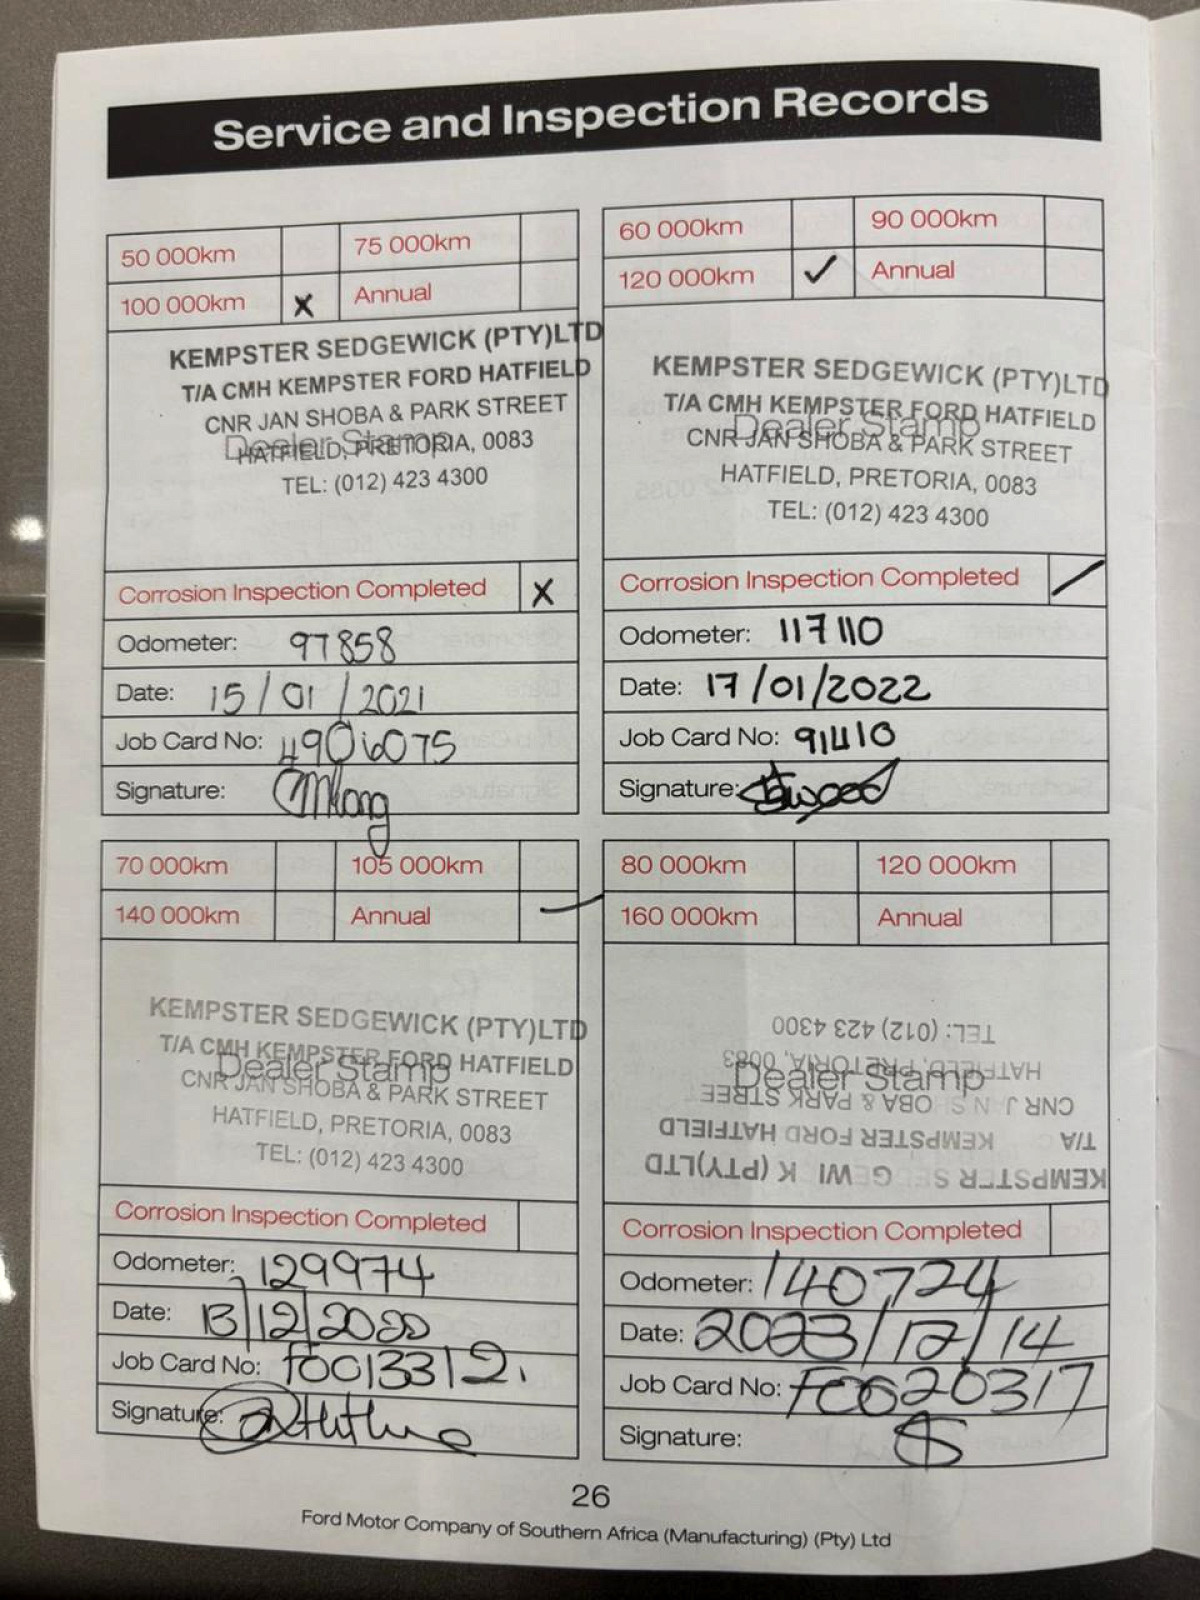 Service and Inspection Records
50 000km 75 000km
100 000km X Annual
KEMPSTER SEDGEWICK (PTY)LTD
T/A CMH KEMPSTER FORD HATFIELD
CNR JAN SHOBA & PARK STREET
Dealer Stamp
HATFIELD, PRETORIA, 0083
TEL: (012) 423 4300
Corrosion Inspection Completed X
Odometer: 97858
Date: 15/01/2021
Job Card No: 4906075
Signature:
60 000km 90 000km
120 000km ✓ Annual
KEMPSTER SEDGEWICK (PTY)LTD
T/A CMH KEMPSTER FORD HATFIELD
Dealer Stamp
CNR JAN SHOBA & PARK STREET
HATFIELD, PRETORIA, 0083
TEL: (012) 423 4300
Corrosion Inspection Completed /
Odometer: 117110
Date: 17/01/2022
Job Card No:
Signature:
70 000km 105 000km
140 000km Annual
KEMPSTER SEDGEWICK (PTY)LTD
T/A CMH KEMPSTER FORD HATFIELD
Dealer Stamp
CNR JAN SHOBA & PARK STREET
HATFIELD, PRETORIA, 0083
TEL: (012) 423 4300
Corrosion Inspection Completed
Odometer: 129974
Date:
Job Card No: f0013312.
Signature:
80 000km 120 000km
160 000km Annual
KEMPSTER (PTY)LTD
T/A KEMPSTER FORD HATFIELD
CNR & PARK STREE
Dealer Stamp
HATFIELD, PRETORIA, 0083
TEL: (012) 423 4300
Corrosion Inspection Completed
Odometer: 140724
Date: 2023/12/14
Job Card No: F0020317
Signature:
26
Ford Motor Company of Southern Africa (Manufacturing) (Pty) Ltd